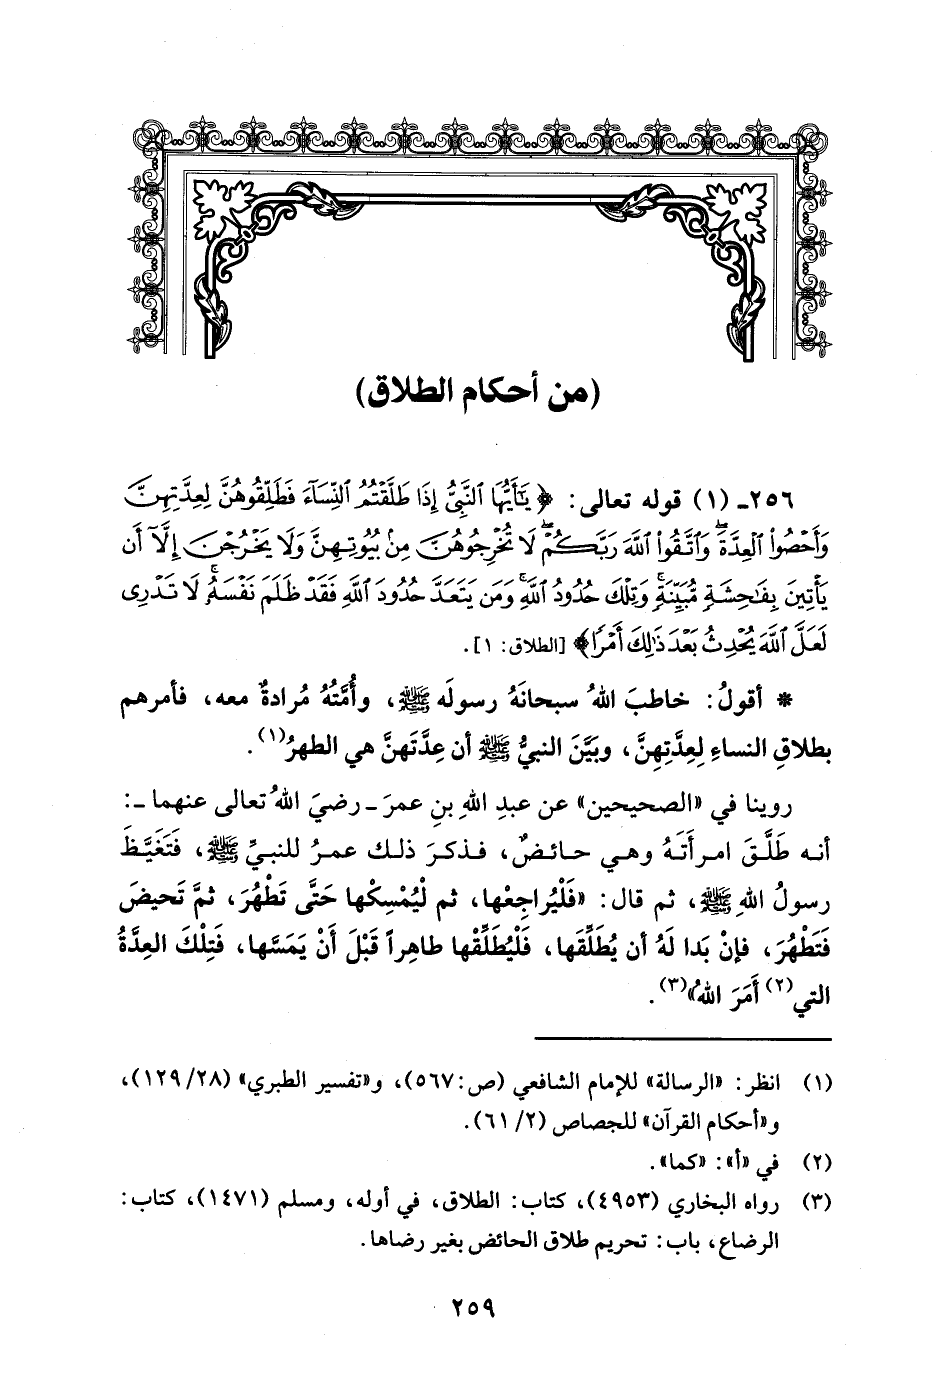 (من أحكام الطلاق)
٢٥٦ـ (١) قوله تعالى: ﴿يَٰٓأَيُّهَا ٱلنَّبِيُّ إِذَا طَلَّقۡتُمُ ٱلنِّسَآءَ فَطَلِّقُوهُنَّ لِعِدَّتِهِنَّ
وَأَحۡصُواْ ٱلۡعِدَّةَۖ وَٱتَّقُواْ ٱللَّهَ رَبَّكُمۡۖ لَا تُخۡرِجُوهُنَّ مِنۢ بُيُوتِهِنَّ وَلَا يَخۡرُجۡنَ إِلَّآ أَن
يَأۡتِينَ بِفَٰحِشَةٖ مُّبَيِّنَةٖۚ وَتِلۡكَ حُدُودُ ٱللَّهِۚ وَمَن يَتَعَدَّ حُدُودَ ٱللَّهِ فَقَدۡ ظَلَمَ نَفۡسَهُۥۚ لَا تَدۡرِي
لَعَلَّ ٱللَّهَ يُحۡدِثُ بَعۡدَ ذَٰلِكَ أَمۡرٗا﴾ [الطلاق: ١].
* أقولُ: خاطبَ اللهُ سبحانَهُ رسولَه ﷺ، وأُمَّتُهُ مُرادةٌ معه، فأمرهم
بطلاقِ النساءِ لِعِدَّتِهِنَّ، وبَيَّنَ النبيُّ ﷺ أن عِدَّتَهنَّ هي الطهرُ(١).
روينا في «الصحيحين» عن عبدِ اللهِ بنِ عمرَ ـ رضيَ اللهُ تعالى عنهما ـ:
أنه طَلَّقَ امرأتَهُ وهي حائضٌ، فذكرَ ذلك عمرُ للنبيِّ ﷺ، فَتَغَيَّظَ
رسولُ اللهِ ﷺ، ثم قال: «فَلْيُراجِعْها، ثم لْيُمْسِكْها حَتَّى تَطْهُرَ، ثمَّ تَحيضَ
فَتَطْهُرَ، فإنْ بَدا لَهُ أن يُطَلِّقَها، فَلْيُطَلِّقْها طاهِراً قَبْلَ أَنْ يَمَسَّها، فَتِلْكَ العِدَّةُ
التي(٢) أَمَرَ اللهُ»(٣).
(١) انظر: «الرسالة» للإمام الشافعي (ص: ٥٦٧)، و«تفسير الطبري» (٢٨/ ١٢٩)،
و«أحكام القرآن» للجصاص (٢/ ٦١).
(٢) في «أ»: «كما».
(٣) رواه البخاري (٤٩٥٣)، كتاب: الطلاق، في أوله، ومسلم (١٤٧١)، كتاب:
الرضاع، باب: تحريم طلاق الحائض بغير رضاها.
٢٥٩